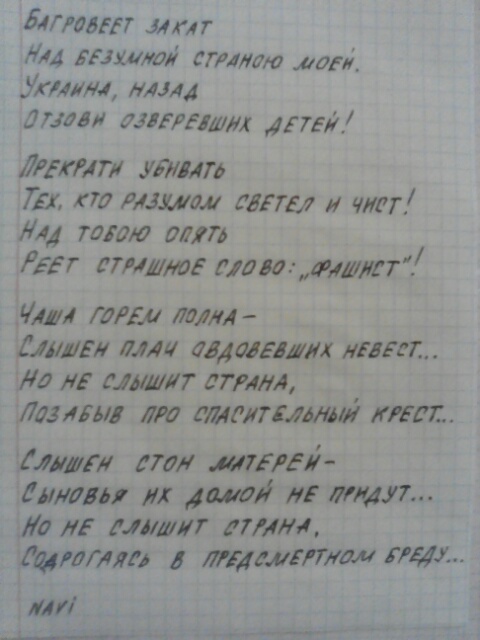 Багровеет закат
Над безумной страною моей.
Украина, назад
Отзови озверевших детей!
Прекрати убивать
Тех, кто разумом светел и чист!
Над тобою опять
Реет страшное слово: „фашист"!
Чаша горем полна –
Слышен плач овдовевших невест...
Но не слышит страна,
Позабыв про спасительный крест...
Слышен стон матерей –
Сыновья их домой не придут...
Но не слышит страна,
Содрогаясь в предсмертном бреду...
NAVi